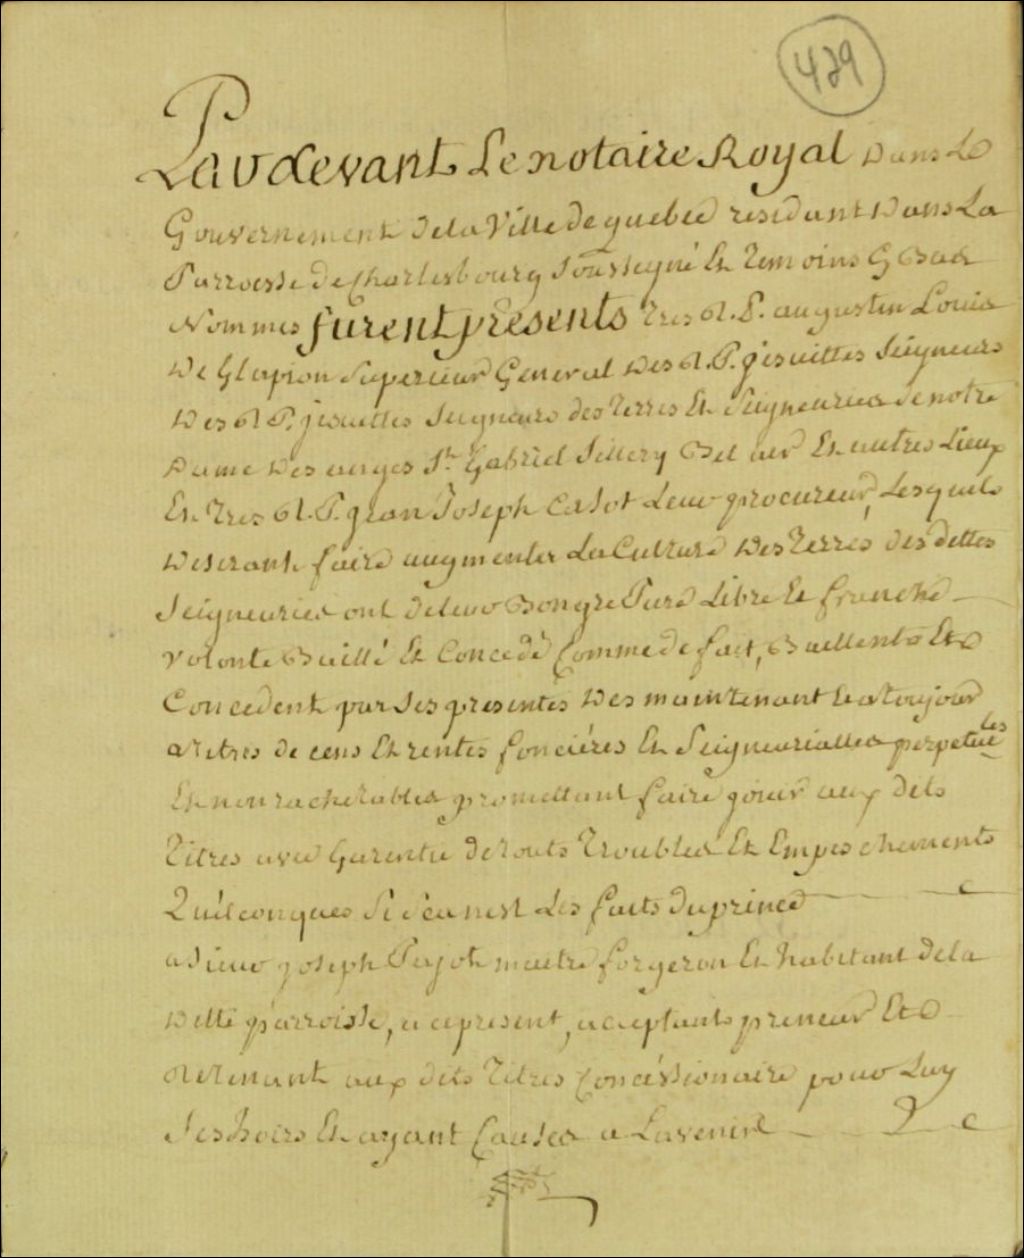 429
Pardevant Le notaire Royal Dans Le
Gouvernement dela Ville de quebec residant Dans La
Parroisse de Charlesbourg Soussigné Et Temoins Cy Bas
Nommes furent presents Tres R. P. augustin Louis
De Glapion Superieur General Des R. P. jesuittes Seigneurs
Des R P. jesuittes Seigneurs des Terres Et Seigneuries de notre
Dame Des anges St. Gabriel Sillery Bel air Et autres Lieux
Et Tres R. P. jean Joseph Casot Leur procureur, Lesquels
Desirants faire augmenter La Culture Des Terres des dettes
Seigneuries ont deleur Bongre Pure Libre Et franche
volonte Baillé Et Concedé Comme de fait, Baillent Et
Concedent par Ses presentes Des maintenant Et a Toujour
a Titres de cens Et rentes fonciéres Et Seigneurialles perpetuelles
Et non rachetables promettant faire jouir aux dits
Titres avec Garentie de Touts Troubles Et Empeschements
Quelconques Si Sen'est Les faits du prince
a Sieur joseph Pajot maitre forgeron Et habitant dela
Ditte parroisse, a cepresent, acceptant preneur Et
Retenant aux dits Titres Concéssionaire pour Luy
Ses hoirs Et ayant Causes a Lavenir